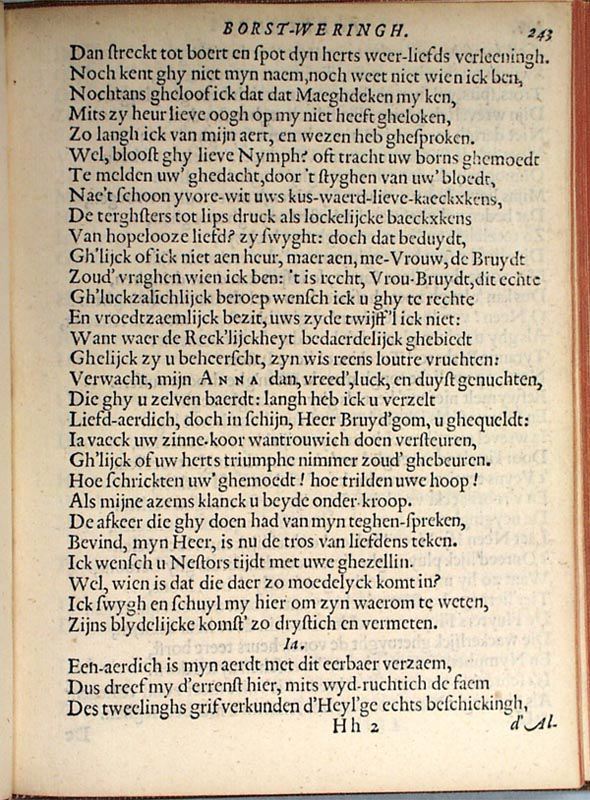 BORST-WERINGH. 243
Dan ſtreckt tot boert en ſpot dyn herts weer-liefds verleeningh.
Noch kent ghy niet myn naem,noch weet niet wien ick ben,
Nochtans gheloof ick dat dat Maeghdeken my ken,
Mits zy heur lieve oogh op my niet heeft gheloken,
Zo langh ick van mijn aert, en wezen heb gheſproken.
Wel, blooſt ghy lieve Nymph? oft tracht uw borns ghemoedt
Te melden uw' ghedacht,door 't ſtyghen van uw' bloedt,
Nae't ſchoon yvore-wit uws kus-waerd-lieve-kaeckxkens,
De terghſters tot lips druck als lockelijcke baeckxkens
Van hopelooze liefd? zy ſwyght: doch dat beduydt,
Gh'lijck of ick niet aen heur, maer aen, me-Vrouw, de Bruydt
Zoud' vraghen wien ick ben: 't is recht, Vrou-Bruydt,dit echte
Gh'luckzalichlijck beroep wenſch ick u ghy te rechte
En vroedtzaemlijck bezit, uws zyde twijff'l ick niet:
Want waer de Reck'lijckheyt bedaerdelijck ghebiedt
Ghelijck zy u beheerſcht, zyn wis reens loutre vruchten:
Verwacht, mijn ANNA dan, vreed',luck, en duyſt genuchten,
Die ghy u zelven baerdt: langh heb ick u verzelt
Liefd-aerdich, doch in ſchijn, Heer Bruyd'gom, u ghequeldt:
Ia vaeck uw zinne-koor wantrouwich doen verſteuren,
Gh'lijck of uw herts triumphe nimmer zoud' ghebeuren.
Hoe ſchrickten uw' ghemoedt ! hoe trilden uwe hoop !
Als mijne azems klanck u beyde onder-kroop.
De afkeer die ghy doen had van myn teghen-ſpreken,
Bevind, myn Heer, is nu de tros van liefdens teken.
Ick wenſch u Neſtors tijdt met uwe ghezellin.
Wel, wien is dat die daer zo moedelyck komt in?
Ick ſwygh en ſchuyl my hier om zyn waerom te weten,
Zijns blydelijcke komſt' zo dryſtich en vermeten.
Ia.
Een-aerdich is myn aerdt met dit eerbaer verzaem,
Dus dreef my d'errenſt hier, mits wyd-ruchtich de faem
Des tweelinghs grif verkunden d'Heyl'ge echts beſchickingh,
Hh 2 d'Al-